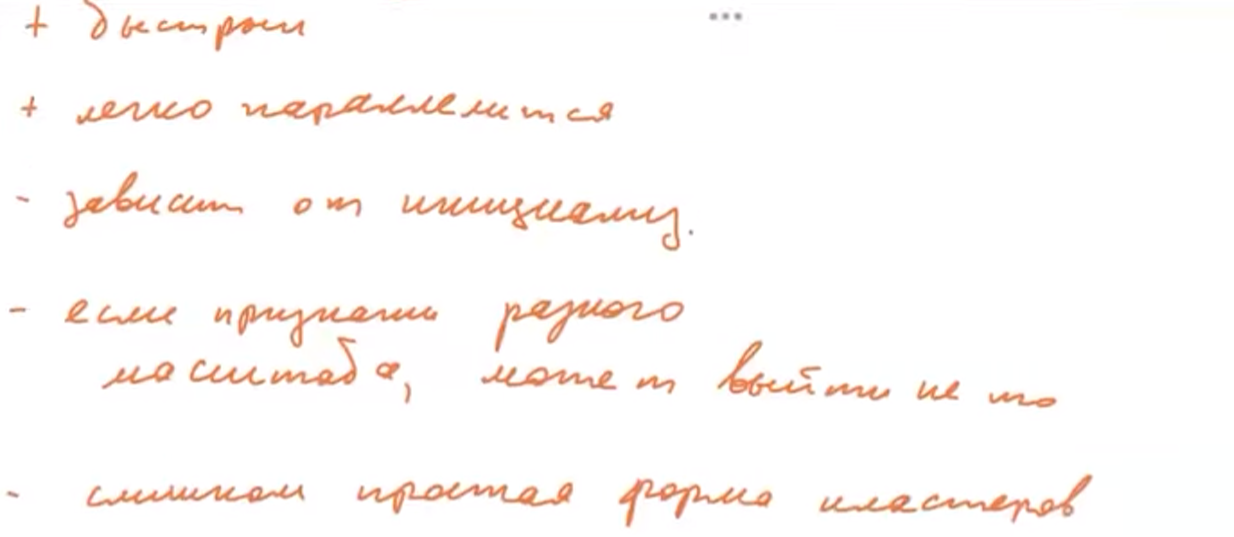 + быстрый
+ легко параллелится
- зависит от инициализ.
- если признаки разного
масштаба, может выйти не то
- слишком простая форма кластеров